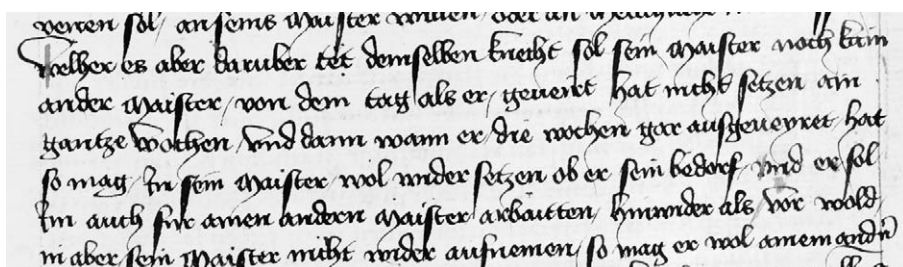 veiren sol / an seins Maister willen / oder an
Welher es aber daruber tet demselben knecht sol sein Maister noch kain
ander Maister / von dem tag als er / geueirt hat nicht setzen ain
gantze wochen / vnd dann wann er / die wochen gar ausgeueyret / hat
so mag / In sein Maister / wol wider setzen ob er sein bedorf / vnd er sol
Im auch fur ainen andern Maister / arbaitten / hinwider als / vor wold /
in aber sein Maister nicht wider aufnemen / so mag er wol ainem andn̄